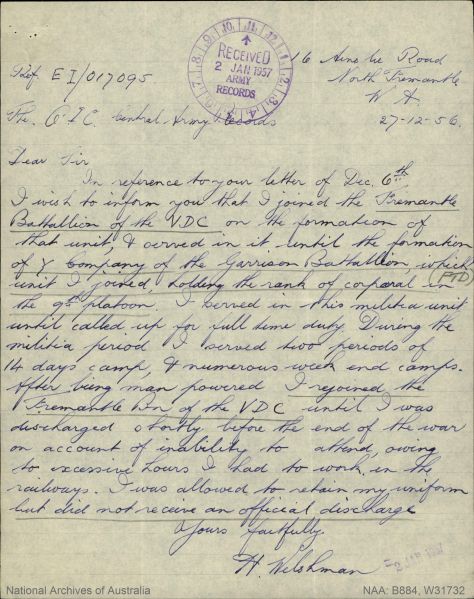 16 Ainslie Road
North Fremantle
W A.
27-12-56.
Ref. EI/017095
RECEIVED
2 JAN 1957
ARMY
RECORDS
The. O I C. Central Army Records
Dear Sir
In reference to your letter of Dec. 6th
I wish to inform you that I joined the Fremantle
Battallion of the VDC on the formation of
that unit, & served in it until the formation
of Y Company of the Garrison Battallion, which
unit I joined, holding the rank of corporal in
the 9th platoon. I served in this militia unit
until called up for full time duty. During the
militia period I served two periods of
14 days camp, & numerous week end camps.
After being man powered I rejoined the
Fremantle Bn. of the VDC until I was
discharged shortly before the end of the war
on account of inability to attend, owing
to excessive hours I had to work, in the
railways. I was allowed to retain my uniform
but did not receive an official discharge
Yours faithfully.
H. Wilshman
2 JAN 1957
National Archives of Australia
NAA: B884, W31732